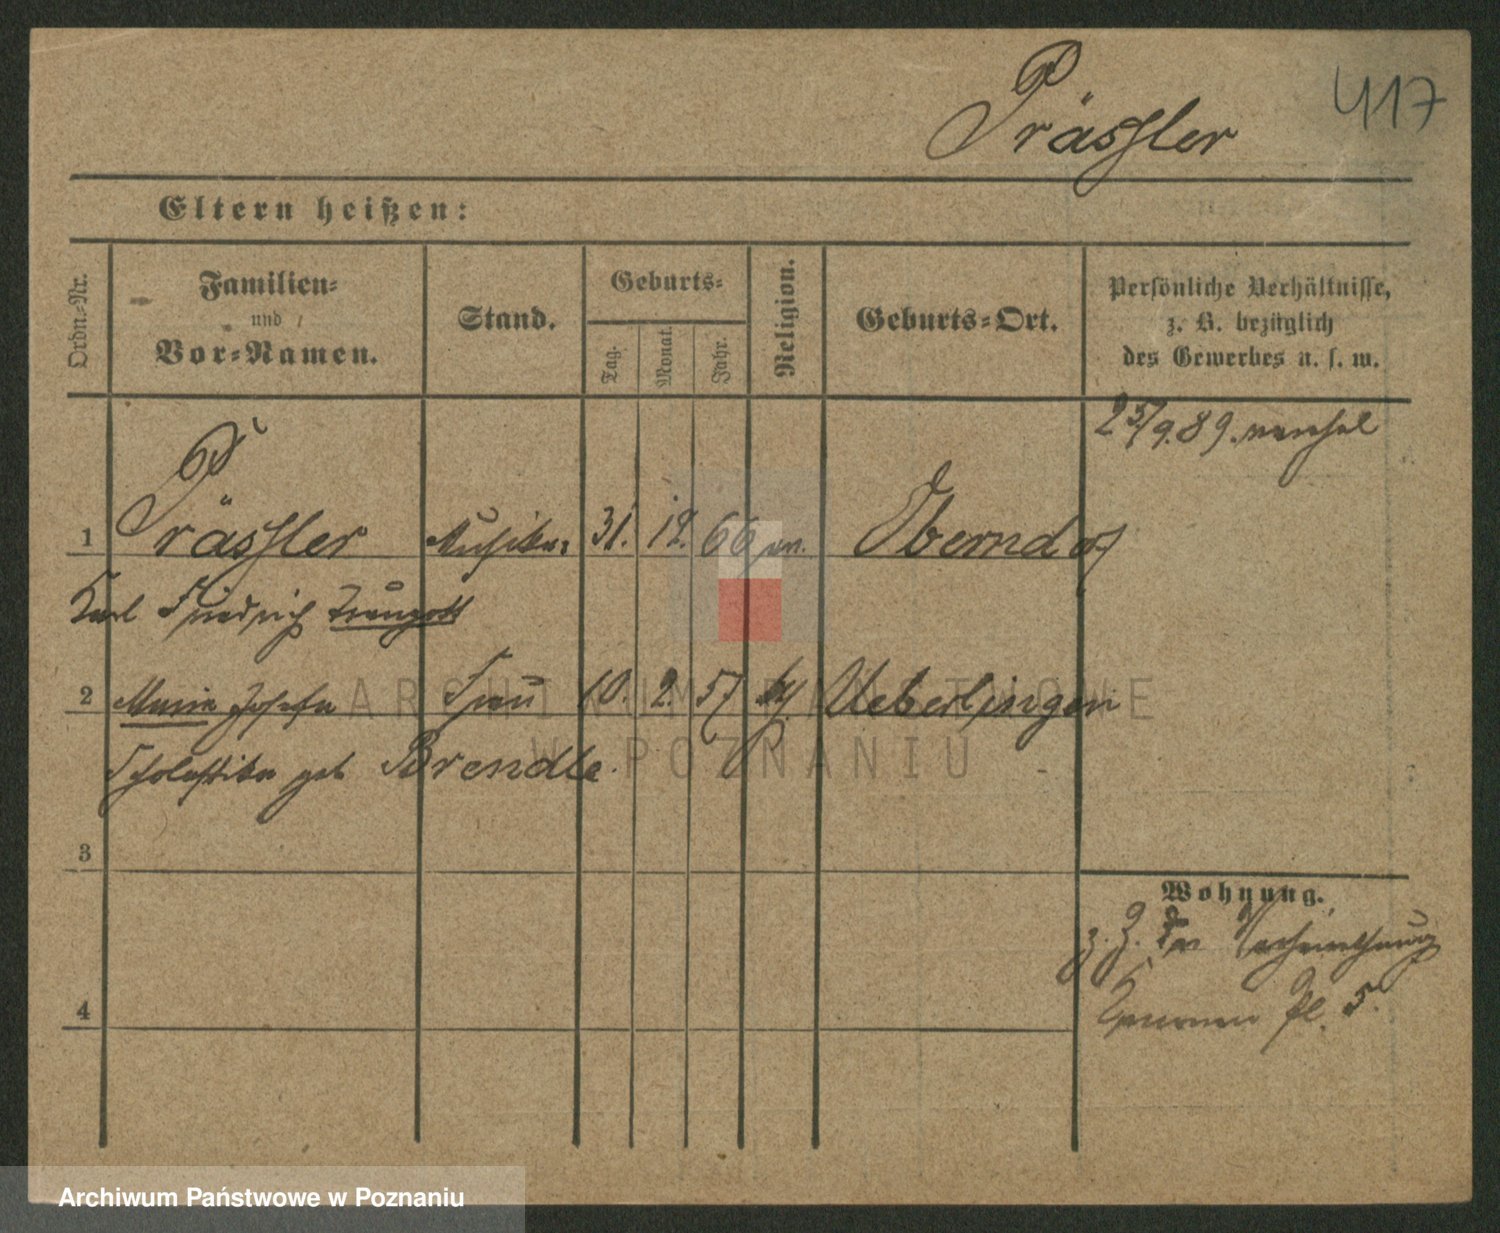 417
Prässler
Eltern heißen:
Ordn.-Nr.
Familien-
und
Vor-Namen.
Stand.
Geburts-
Tag.
Monat.
Jahr.
Religion.
Geburts-Ort.
Persönliche Verhältnisse,
z. B. bezüglich
des Gewerbes u. s. w.
25/9.89.
1 Prässler Musiker 31. 12. 66 Oberndorf
Karl Friedrich Traugott
2 Maria Josefa Frau 10. 2. 57 Ueberlingen
Scholastika geb Brendle.
3
4
Wohnung.
z. Z. der Verheirathung
Pl. 5.
ARCHIWUM PAŃSTWOWE
W POZNANIU
Archiwum Państwowe w Poznaniu